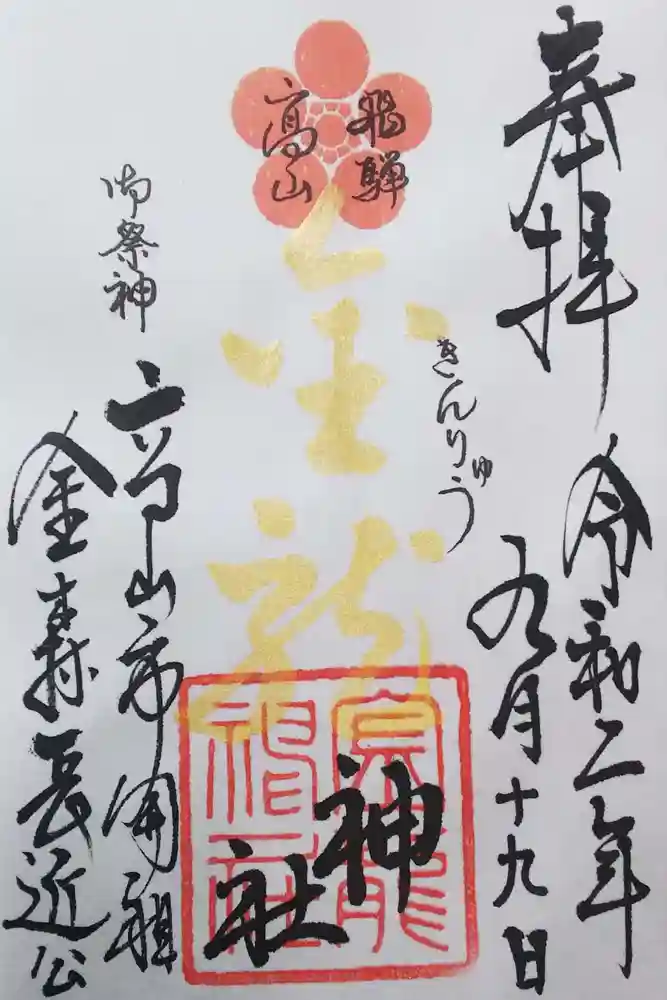 奉拝
令和二年
九月十九日
飛騨
高山
きんりゅう
金龍
神社
御祭神
高山市開祖
金森長近公